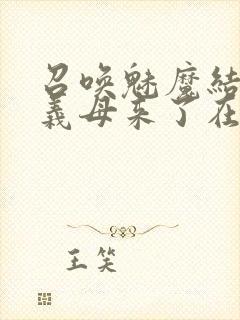 召唤魅魔结
义母来了在
王笑